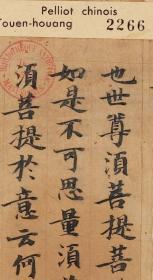 Pelliot chinois
Touen-houang 2266
也世尊須菩提菩
如是不可思量須
須菩提於意云何